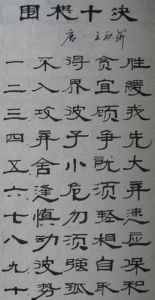 围棋十决
唐·王积薪
一 不得贪胜
二 入界宜缓
三 攻彼顾我
四 弃子争先
五 舍小就大
六 逢危须弃
七 慎勿轻速
八 动须相应
九 彼强自保
十 势孤取和